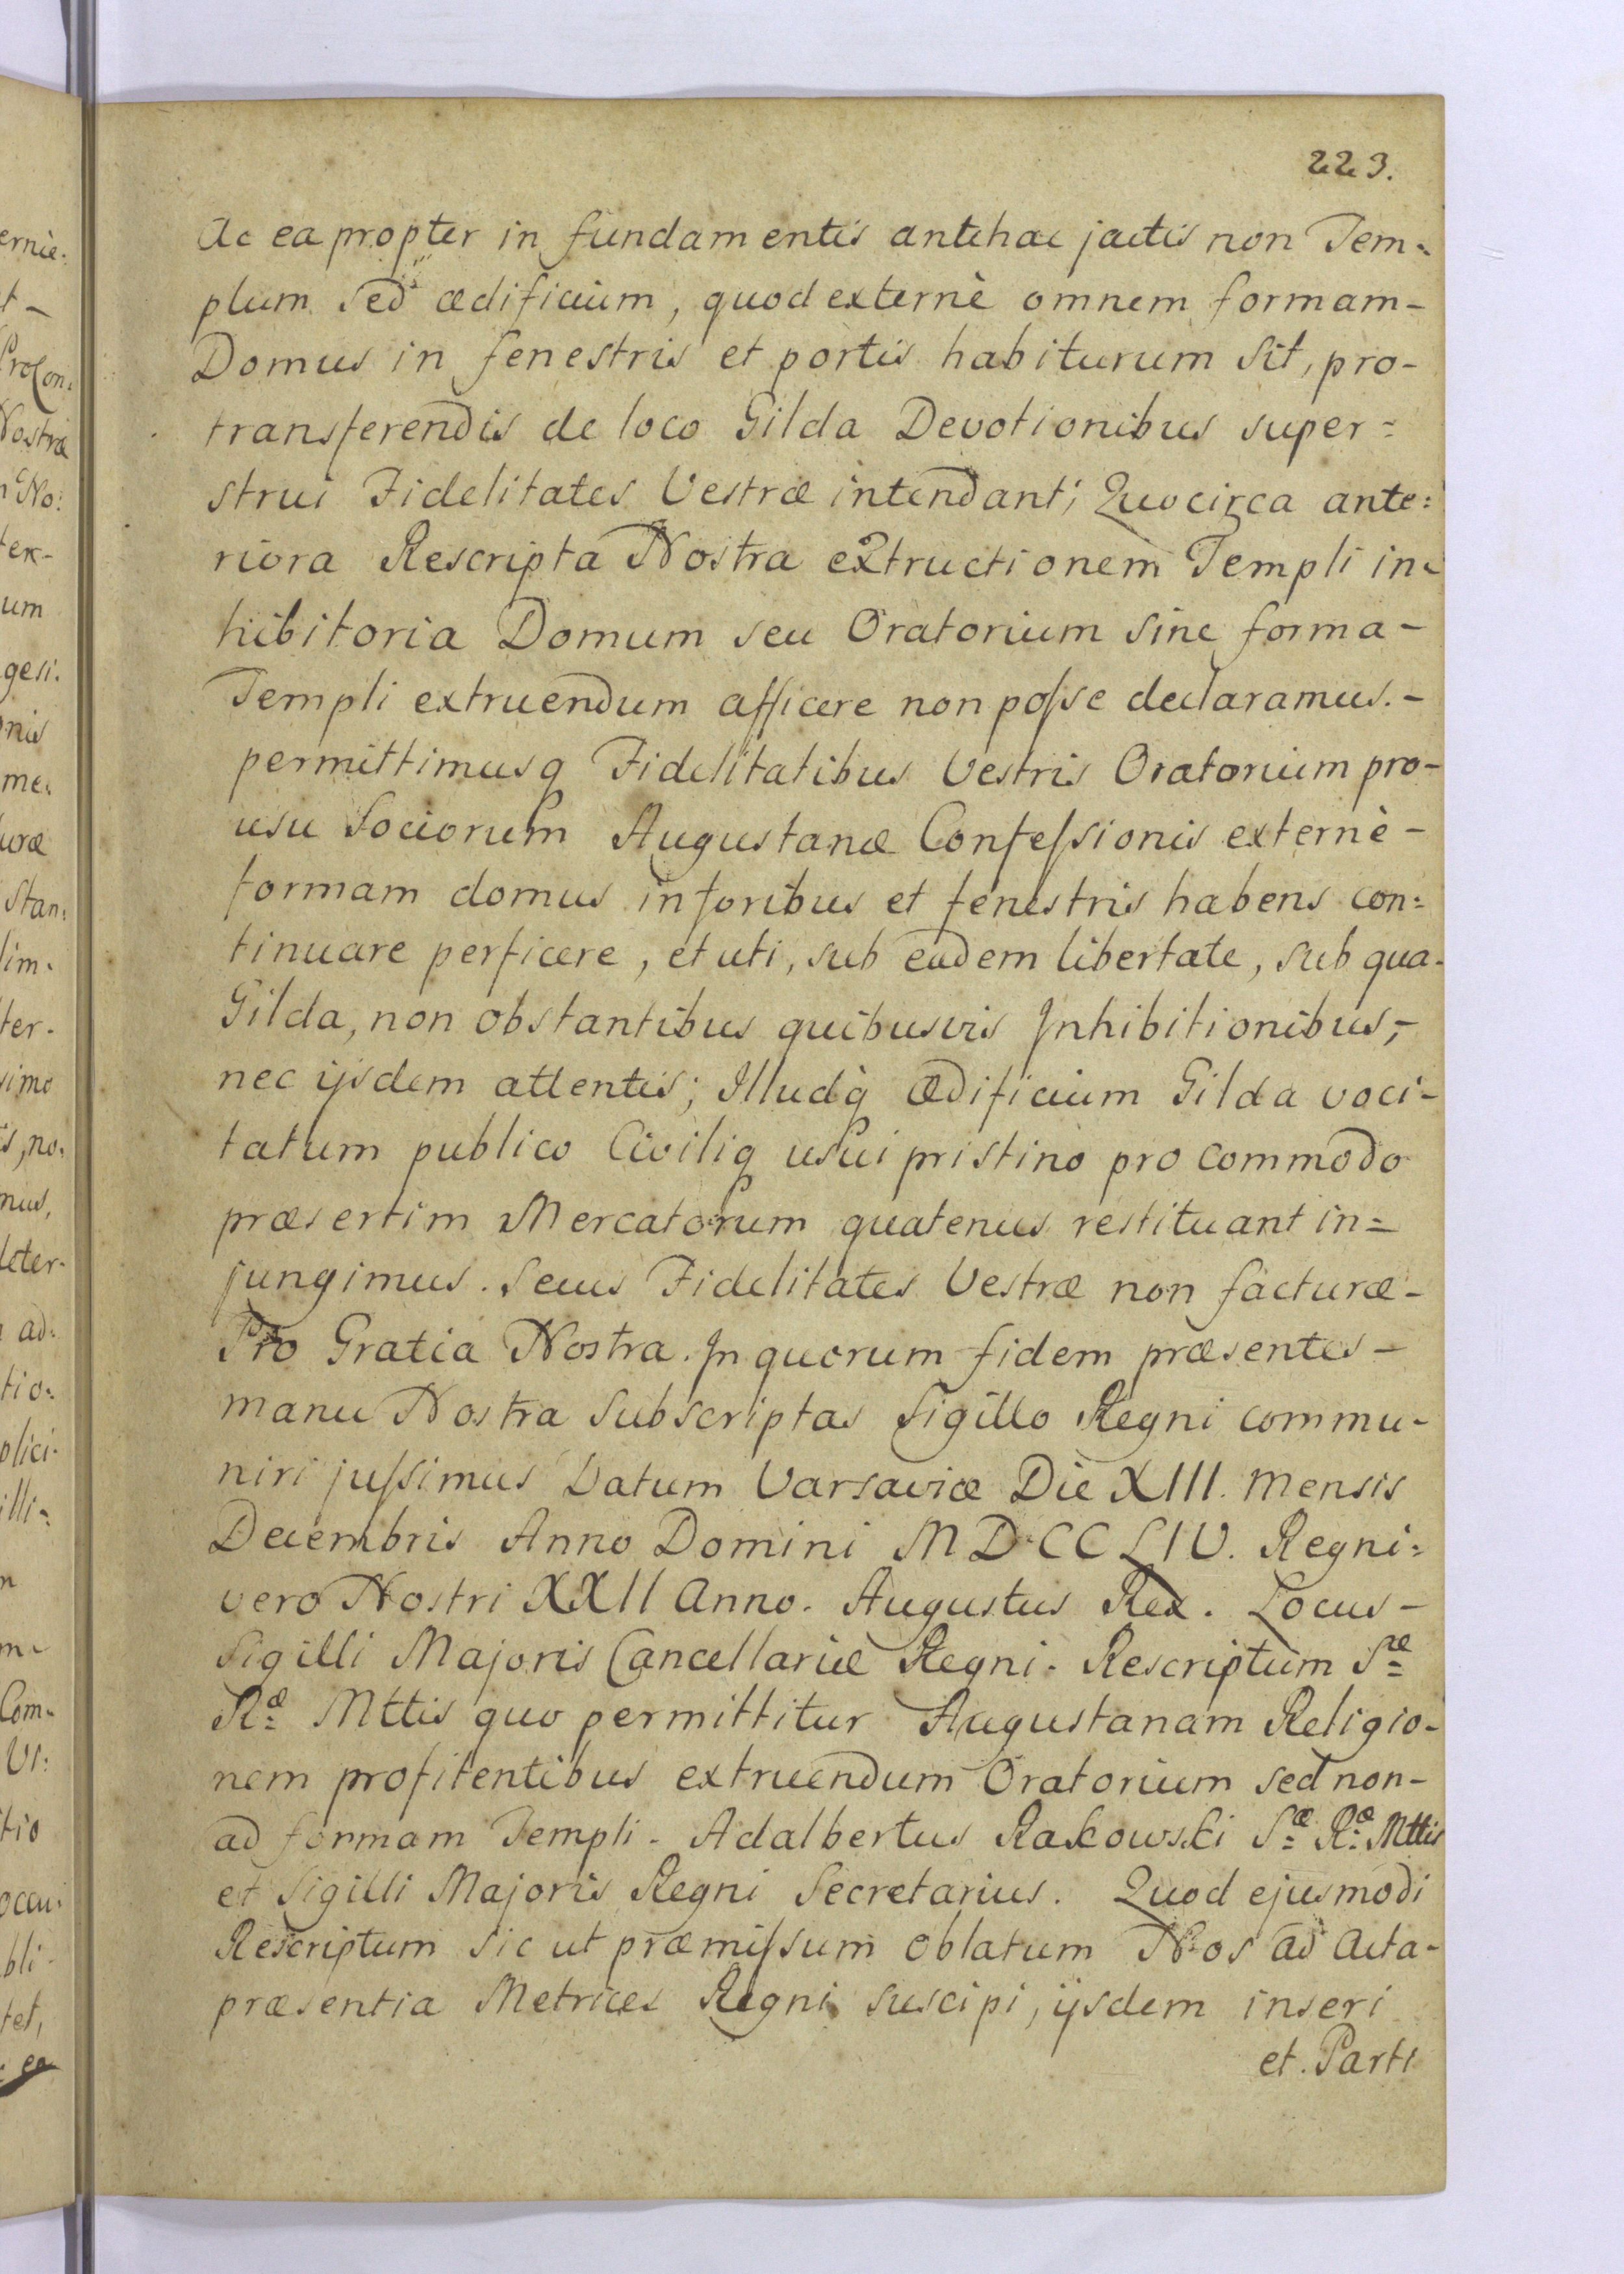 223.
Ac ea propter in fundamentis antehac jactis non Tem=
plum sed ædificium, quod externè omnem formam-
Domus in fenestris et portis habiturum sit, pro-
transferendis de loco Gilda Devotionibus super=
strui Fidelitates Vestræ intendant; Quocirca ante=
riora Rescripta Nostra extructionem Templi in=
hibitoria Domum seu Oratorium sine forma-
Templi extruendum afficere non posse declaramus.-
permittimusq Fidelitatibus Vestris Oratorium pro-
usu Sociorum Augustanæ Confessionis externè-
formam domus in foribus et fenestris habens con=
tinuare perficere, et uti, sub eadem libertate, sub qua-
Gilda, non obstantibus quibusvis Inhibitionibus,-
nec ijsdem attentis; Illudq̀ Ædificium Gilda voci-
tatum publico Civiliq usui pristino pro commodo
præsertim Mercatorum quatenus restituant in=
jungimus. Secus Fidelitates Vestræ non facturæ-
Pro Gratia Nostra. In quorum fidem præsentes-
manu Nostra Subscriptas Sigillo Regni commu-
niri jussimus Datum Varsaviæ Die XIII. mensis
Decembris Anno Domini MDCCLIV. Regni=
vero Nostri XXII Anno. Augustus Rex. Locus-
Sigilli Majoris Cancellariæ Regni. Rescriptum Sæ=
Ræ= Mttis quo permittitur Augustanam Religio-
nem profitentibus extruendum Oratorium sed non-
ad formam Templi. Adalbertus Rakowski Sæ= Ræ= Mttis
et Sigilli Majoris Regni Secretarius. Quod ejusmodi
Rescriptum sic ut præmissum oblatum Nos ad Acta-
præsentia Metrices Regni suscipi, ijsdem inseri
et Parti
ernie=
t-
No:
um
gesi.
nis
me.
uræ
Stan:
lim.
ter-
simo
nus,
ad:
tio:
plici-
illi-
Com-
tio
bli-
tet,